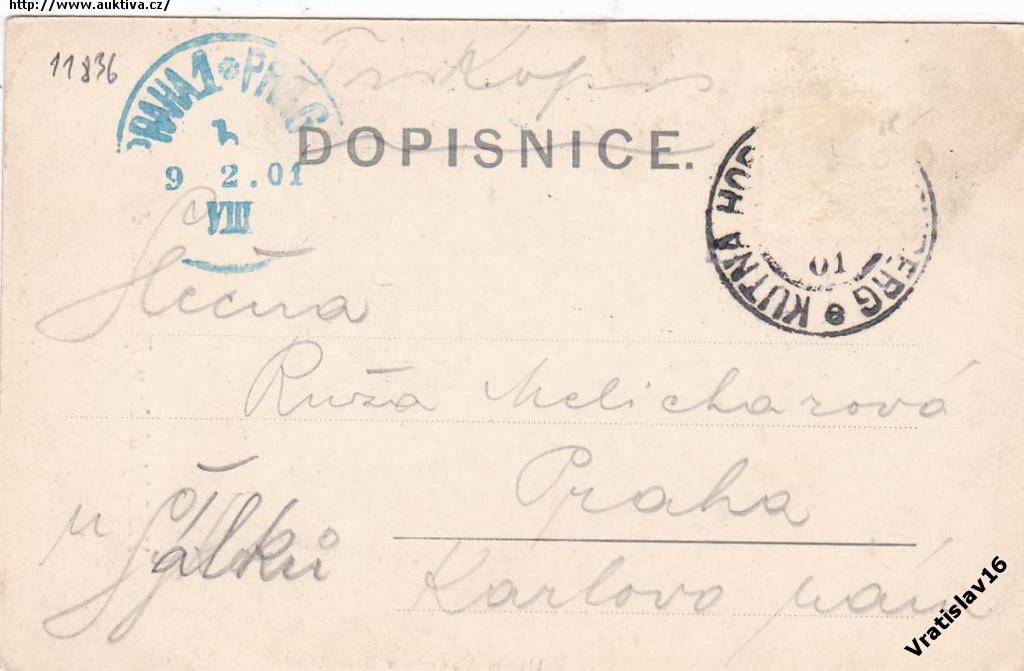 http://www.auktiva.cz/
11836
PRAHA 1 PRAG
9 2.01
VIII
DOPISNICE.
KUTNÁ HOR ERG
01
Slečna
Růža Melicharová
Praha
u Šálků
Karlovo nám
Vratislav16